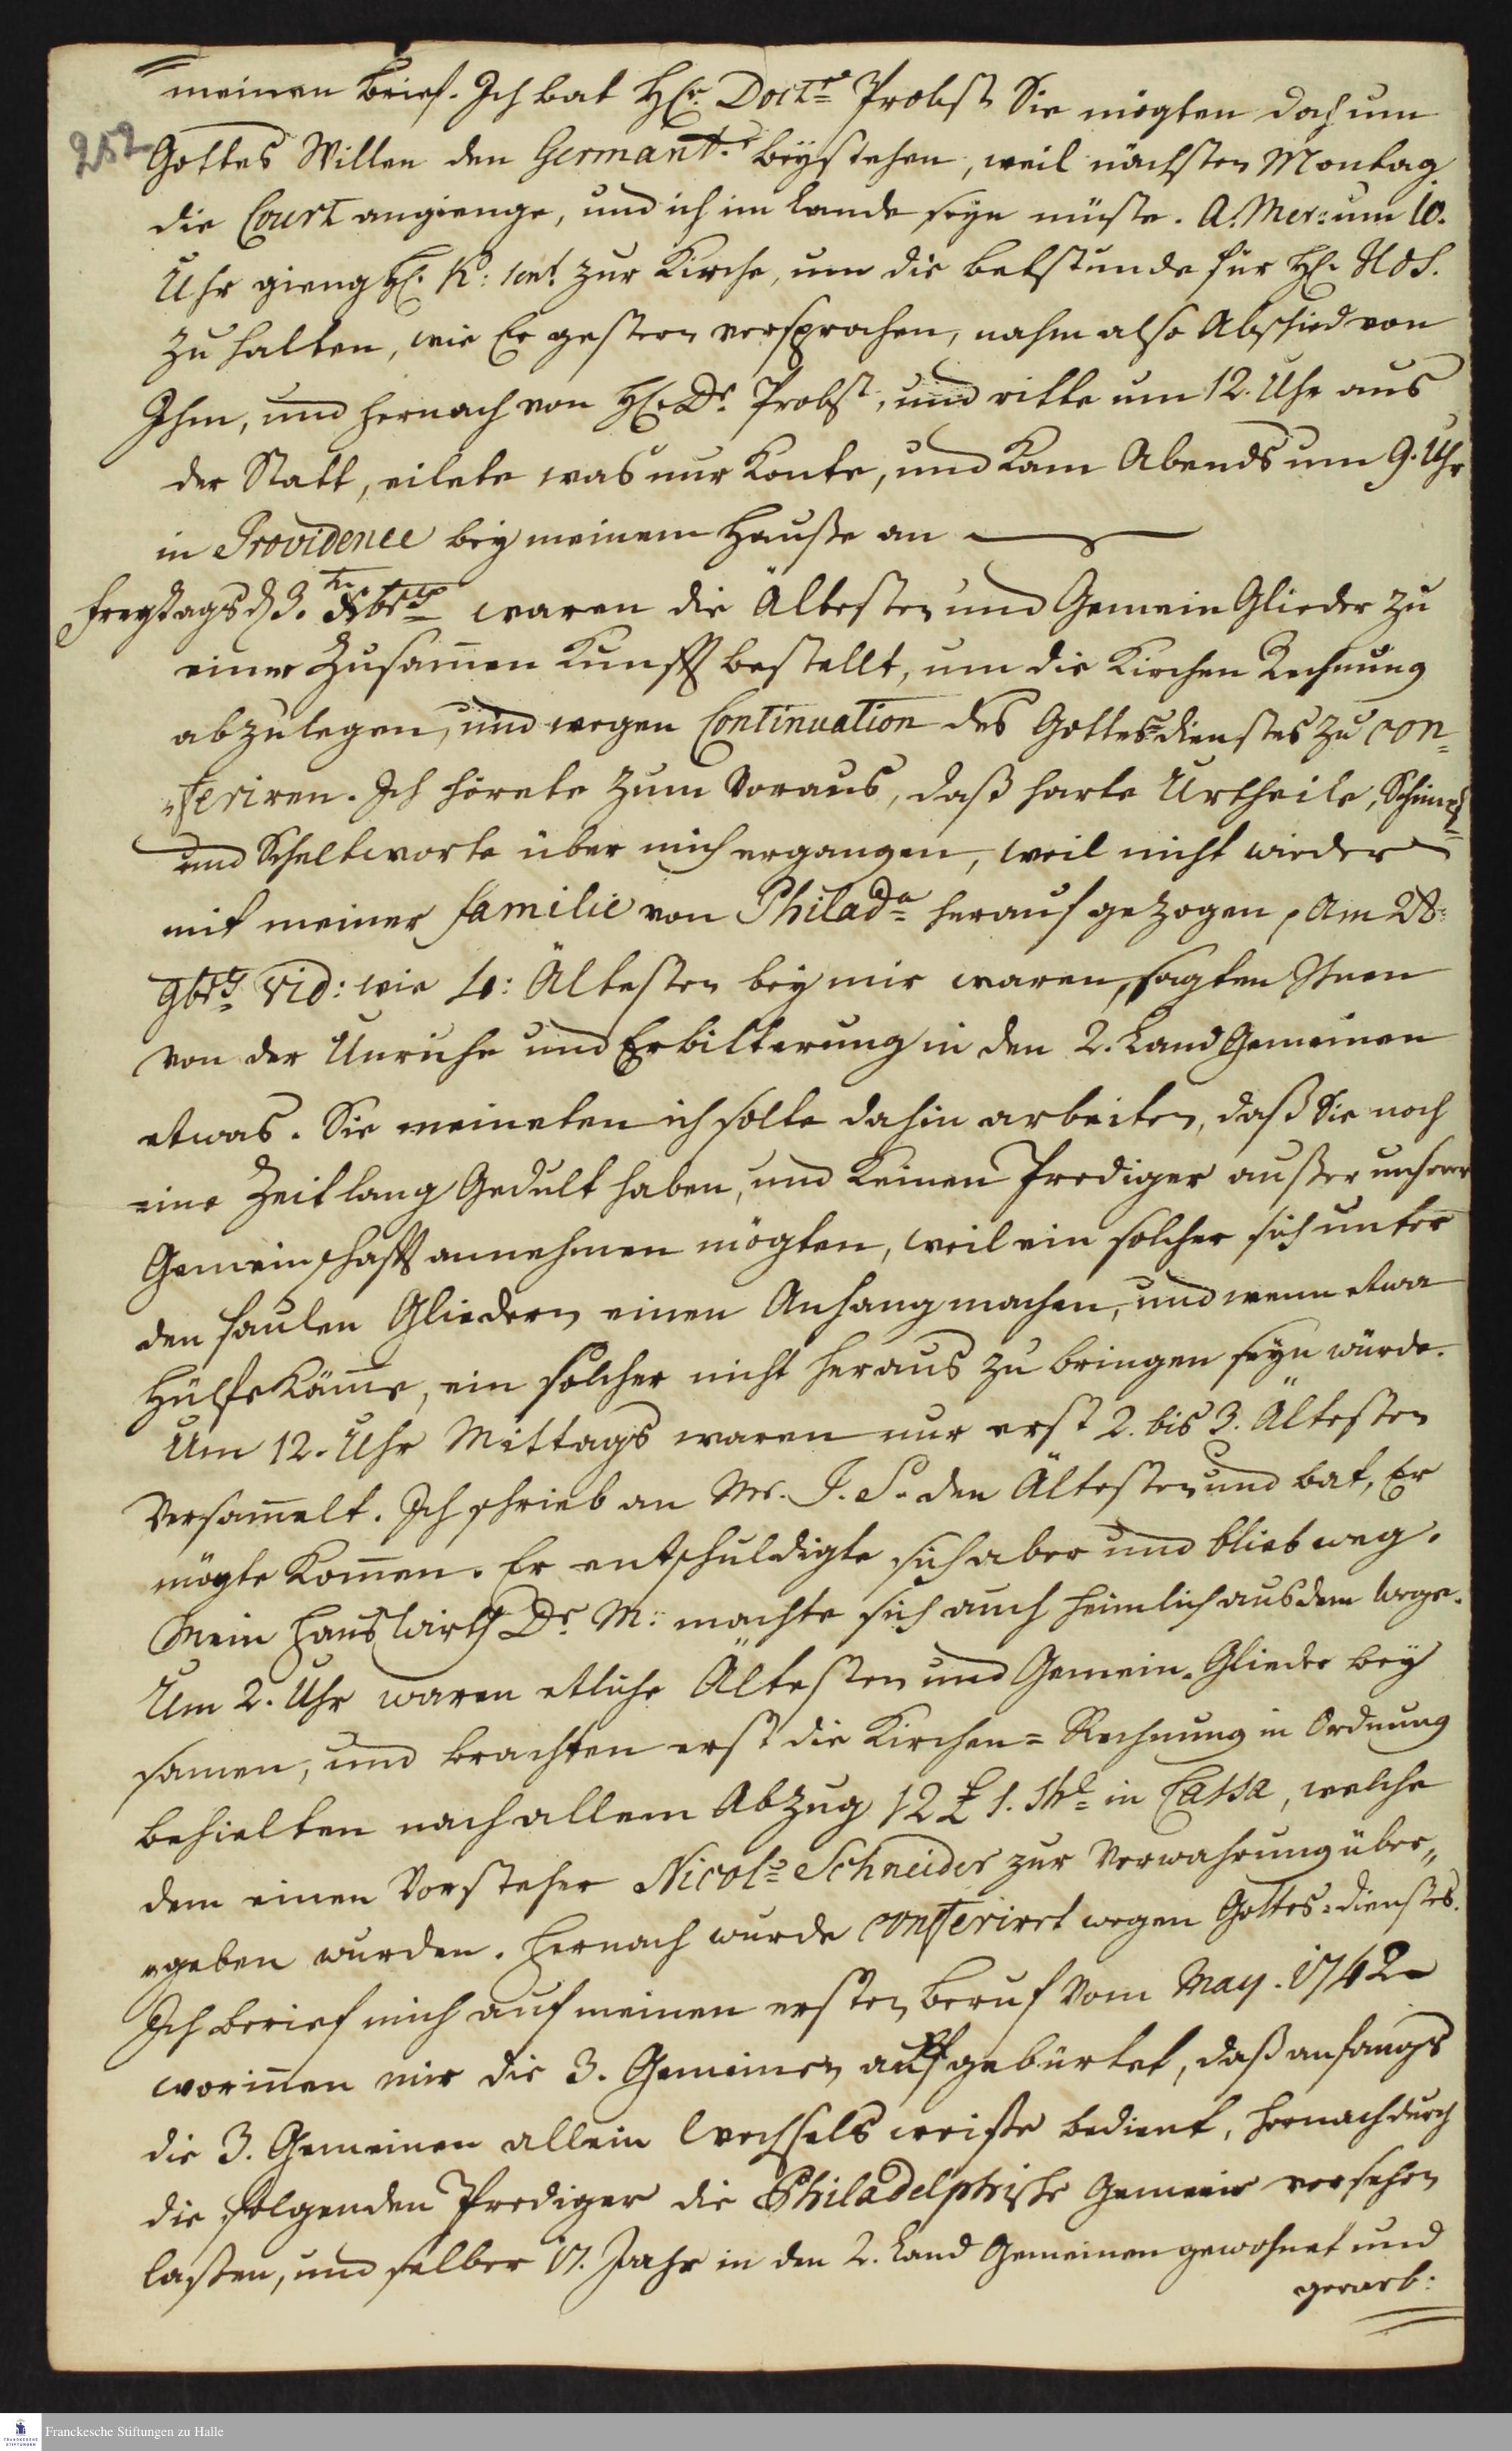 meinen Brief. Ich bat HE. Doct: Probst Sie mögten doch um
252
Gottes Willen den Germant: beystehen, weil nächsten Montag
die Court angienge, und ich im Lande seyn müste. A: Mer: um 10.
Uhr gieng HE. K: zur Kirche, um die betstunde für HE.
zu halten, wie Er gestern versprochen, nahm also Abschied von
Ihm, und hernach von HE. Dr. Probst, und ritte um 12. Uhr aus
der Statt, eilete was nur konte, und kam Abends um 9. Uhr
in Providence bey meinem Hauße an
Freytags d 3. Xbr waren die Ältesten und Gemein Glieder zu
einer Zusam̅en Kunfft bestellt, um die Kirchen Rechnung
abzulegen, und wegen Continuation des Gottesdienstes zu con=
feriren. Ich hörete zum Voraus, daß harte Urtheile, Schimpf
und Scheltworte über mich ergangen, weil nicht wieder
mit meiner familie von Philada herauf gezogen, Am 28
9br vid: wie 4: Ältesten bey mir waren, sagten Ihnen
von der Unruhe und Erbitterung in den 2. Land Gemeinen
etwas. Sie meineten ich solte dahin arbeiten, daß Sie noch
eine Zeitlang Gedult haben, und keinen Prediger außer unserer
Gemeinschafft annehmen mögten, weil ein solcher sich unter
den faulen Gliedern einen Anhang machen, und wenn etwa
Hülfe käm̅e, ein solcher nicht heraus zu bringen seyn würde.
Um 12. Uhr Mittags waren nur erst 2. bis 3. Ältesten
Versam̅elt. Ich schrieb an Mr. J. S. den Ältesten und bat, Er
mögte kom̅en. Er entschuldigte sich aber und blieb weg.
Mein Hauswirth Dr. M: machte sich auch heimlich aus dem Wege.
Um 2. Uhr waren etliche Ältesten und Gemein-Glieder bey
samen, und brachten erst die Kirchen=Rechnung in Ordnung
behielten nach allem Abzug 12 £ 1. Sh in Cassa, welche
dem einen Vorsteher Nicol: Schneider zur Verwahrung über„
„geben wurden. Hernach wurde conferiret wegen Gottes=dienstes.
Ich berief mich auf meinen ersten Beruf vom May. 1742
worin̅en mir die 3. Gemeinen auffgebürtet, daß anfangs
die 3. Gemeinen allein Wechsels weiße bedient, hernach durch
die folgenden Prediger die Philadelphische Gemeine versehen
laßen, und selber 17. Jahr in den 2. Land Gemeinen gewohnet und
gearb:
Franckesche Stiftungen zu Halle